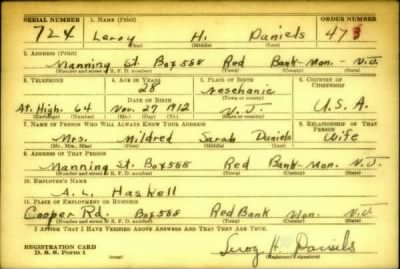 SERIAL NUMBER 1. NAME (Print) ORDER NUMBER
724 Leroy H. Daniels 473
(First) (Middle) (Last)
2. ADDRESS (Print)
Manning St. Box 588 Red Bank - Mon. - N.J.
(Number and street or R. F. D. number) (Town) (County) (State)
3. TELEPHONE 4. AGE IN YEARS 5. PLACE OF BIRTH 6. COUNTRY OF CITIZENSHIP
28 Neschanic
DATE OF BIRTH (Town or county)
At. High. 64 Nov. 27 1912 N.J. U.S.A.
(Exchange) (Number) (Mo.) (Day) (Yr.) (State or country)
7. NAME OF PERSON WHO WILL ALWAYS KNOW YOUR ADDRESS 8. RELATIONSHIP OF THAT PERSON
Mrs. Mildred Sarah Daniels Wife
(Mr., Mrs., Miss) (First) (Middle) (Last)
9. ADDRESS OF THAT PERSON
Manning St. Box 588 Red Bank - Mon. N.J.
(Number and street or R. F. D. number) (Town) (County) (State)
10. EMPLOYER'S NAME
A. L. Haskell
11. PLACE OF EMPLOYMENT OR BUSINESS
Cooper Rd. Box 588 Red Bank Mon. N.J.
(Number and street or R. F. D. number) (Town) (County) (State)
I AFFIRM THAT I HAVE VERIFIED ABOVE ANSWERS AND THAT THEY ARE TRUE.
REGISTRATION CARD
D. S. S. Form 1 Leroy H. Daniels
(Registrant's signature)